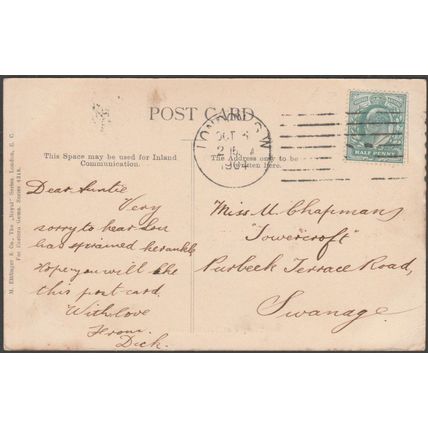 POST CARD
This Space may be used for Inland
Communication.
The Address only to be
Written here.
LONDON S.W.
OCT 6
1904
HALF PENNY
M. Ettlinger & Co., The "Royal" Series, London, E. C.
Dear Auntie
Very
sorry to hear Lou
has sprained her ankle
Hope you will like
this post card.
With love
From
Dick.
Miss M. Chapman
"Towercroft"
Purbeck Terrace Road,
Swanage.